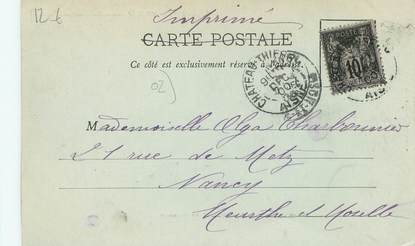 12-6
Imprimé
CARTE POSTALE
Ce côté est exclusivement réservé à l'adresse
02
CHATEAU-THIERRY
AISNE
10
Mademoiselle Olga Charbonnier
21 rue de Metz
Nancy
Meurthe et Moselle